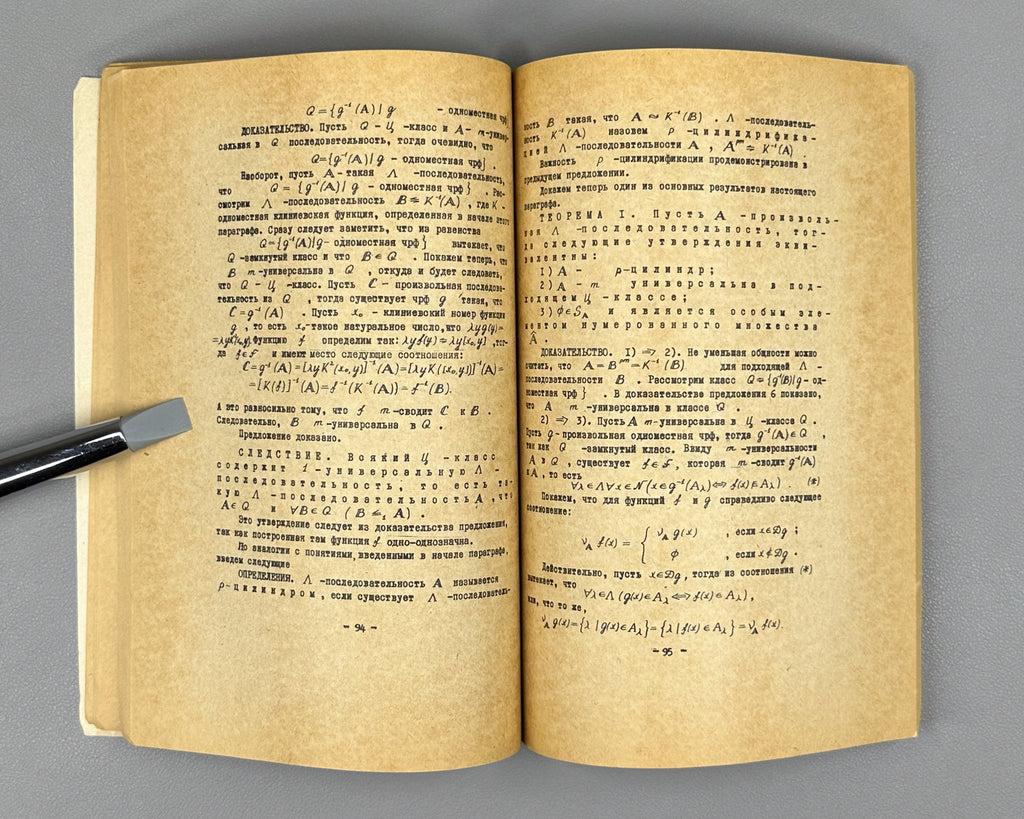 Q = {g⁻¹(A) | g - одноместная чрф
ДОКАЗАТЕЛЬСТВО. Пусть Q - Ц -класс и A - m-универ-
сальная в Q последовательность, тогда очевидно, что
Q={g⁻¹(A) | g - одноместная чрф} .
Наоборот, пусть A - такая Λ -последовательность,
что Q = {g⁻¹(A) | g - одноместная чрф} . Рас-
смотрим Λ -последовательность B ≈ K⁻¹(A) , где K -
одноместная клиниевская функция, определенная в начале этого
параграфа. Сразу следует заметить, что из равенства
Q={g⁻¹(A)|g - одноместная чрф} вытекает, что
Q -замкнутый класс и что B ∈ Q . Покажем теперь, что
B m -универсальна в Q , откуда и будет следовать,
что Q - Ц -класс. Пусть C - произвольная последова-
тельность из Q , тогда существует чрф g такая, что
C = g⁻¹(A) . Пусть x₀ - клиниевский номер функции
g , то есть x₀-такое натуральное число, что λyg(y)=
=λyK²(x₀,y). Функцию f определим так: λyf(y) ≈ λy[x₀,y] , тог-
да f∈F и имеют место следующие соотношения:
C=g⁻¹(A)=[λyK²(x₀,y)]⁻¹(A)=[λyK([x₀,y])]⁻¹(A)=
=[K(f)]⁻¹(A)=f⁻¹(K⁻¹(A))=f⁻¹(B).
А это равносильно тому, что f m -сводит C к B .
Следовательно, B m -универсальна в Q .
Предложение доказано.
СЛЕДСТВИЕ. Всякий Ц -класс
содержит 1-универсальную Λ -
последовательность, то есть та-
кую Λ -последовательность A , что
A∈Q и ∀B∈Q (B ≤₁ A) .
Это утверждение следует из доказательства предложения,
так как построенная там функция f одно-однозначна.
По аналогии с понятиями, введенными в начале параграфа,
введем следующие
ОПРЕДЕЛЕНИЯ. Λ -последовательность A называется
ρ-цилиндром, если существует Λ -последователь-
- 94 -
ность B такая, что A ≈ K⁻¹(B) . Λ -последователь-
ность K⁻¹(A) назовем ρ -цилиндрифика-
цией Λ -последовательности A , Aᵖ ≈ K⁻¹(A)
Важность ρ -цилиндрификации продемонстрирована в
предыдущем предложении.
Докажем теперь один из основных результатов настоящего
параграфа.
ТЕОРЕМА 1. Пусть A -произволь-
ная Λ -последовательность, тог-
да следующие утверждения экви-
валентны:
1) A - ρ-цилиндр;
2) A - m универсальна в под-
ходящем Ц - классе;
3) ϕ∈S_A и является особым эле-
ментом нумерованного множества
Â .
ДОКАЗАТЕЛЬСТВО. 1) ⇒ 2). Не уменьшая общности можно
считать, что A = Bᵖ = K⁻¹(B) для подходящей Λ -
последовательности B . Рассмотрим класс Q = {g⁻¹(B)|g - од-
номестная чрф} . В доказательстве предложения 6 показано,
что A m -универсальна в классе Q .
2) ⇒ 3). Пусть A m-универсальна в Ц -классе Q .
Пусть g-произвольная одноместная чрф, тогда g⁻¹(A)∈Q ,
так как Q -замкнутый класс. Ввиду m -универсальности
A в Q , существует f∈F , которая m -сводит g⁻¹(A)
к A , то есть
∀λ∈Λ∀x∈N(x∈g⁻¹(A_λ)⇔f(x)∈A_λ) . (*)
Покажем, что для функций f и g справедливо следующее
соотношение:
ν_A f(x) = { ν_A g(x) , если x∈Dg ;
ϕ , если x∉Dg .
Действительно, пусть x∈Dg , тогда из соотношения (*)
вытекает, что
∀λ∈Λ (g(x)∈A_λ⇔f(x)∈A_λ),
или, что то же,
ν_A g(x)={λ | g(x)∈A_λ}={λ | f(x)∈A_λ}=ν_A f(x).
- 95 -